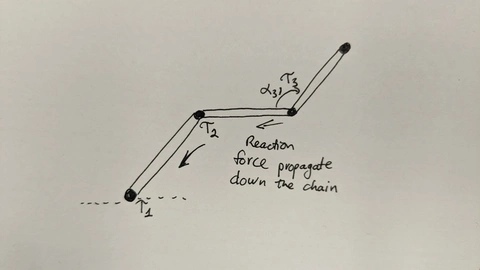 α₃, τ₃
τ₂
Reaction
force propagate
down the chain
τ₁